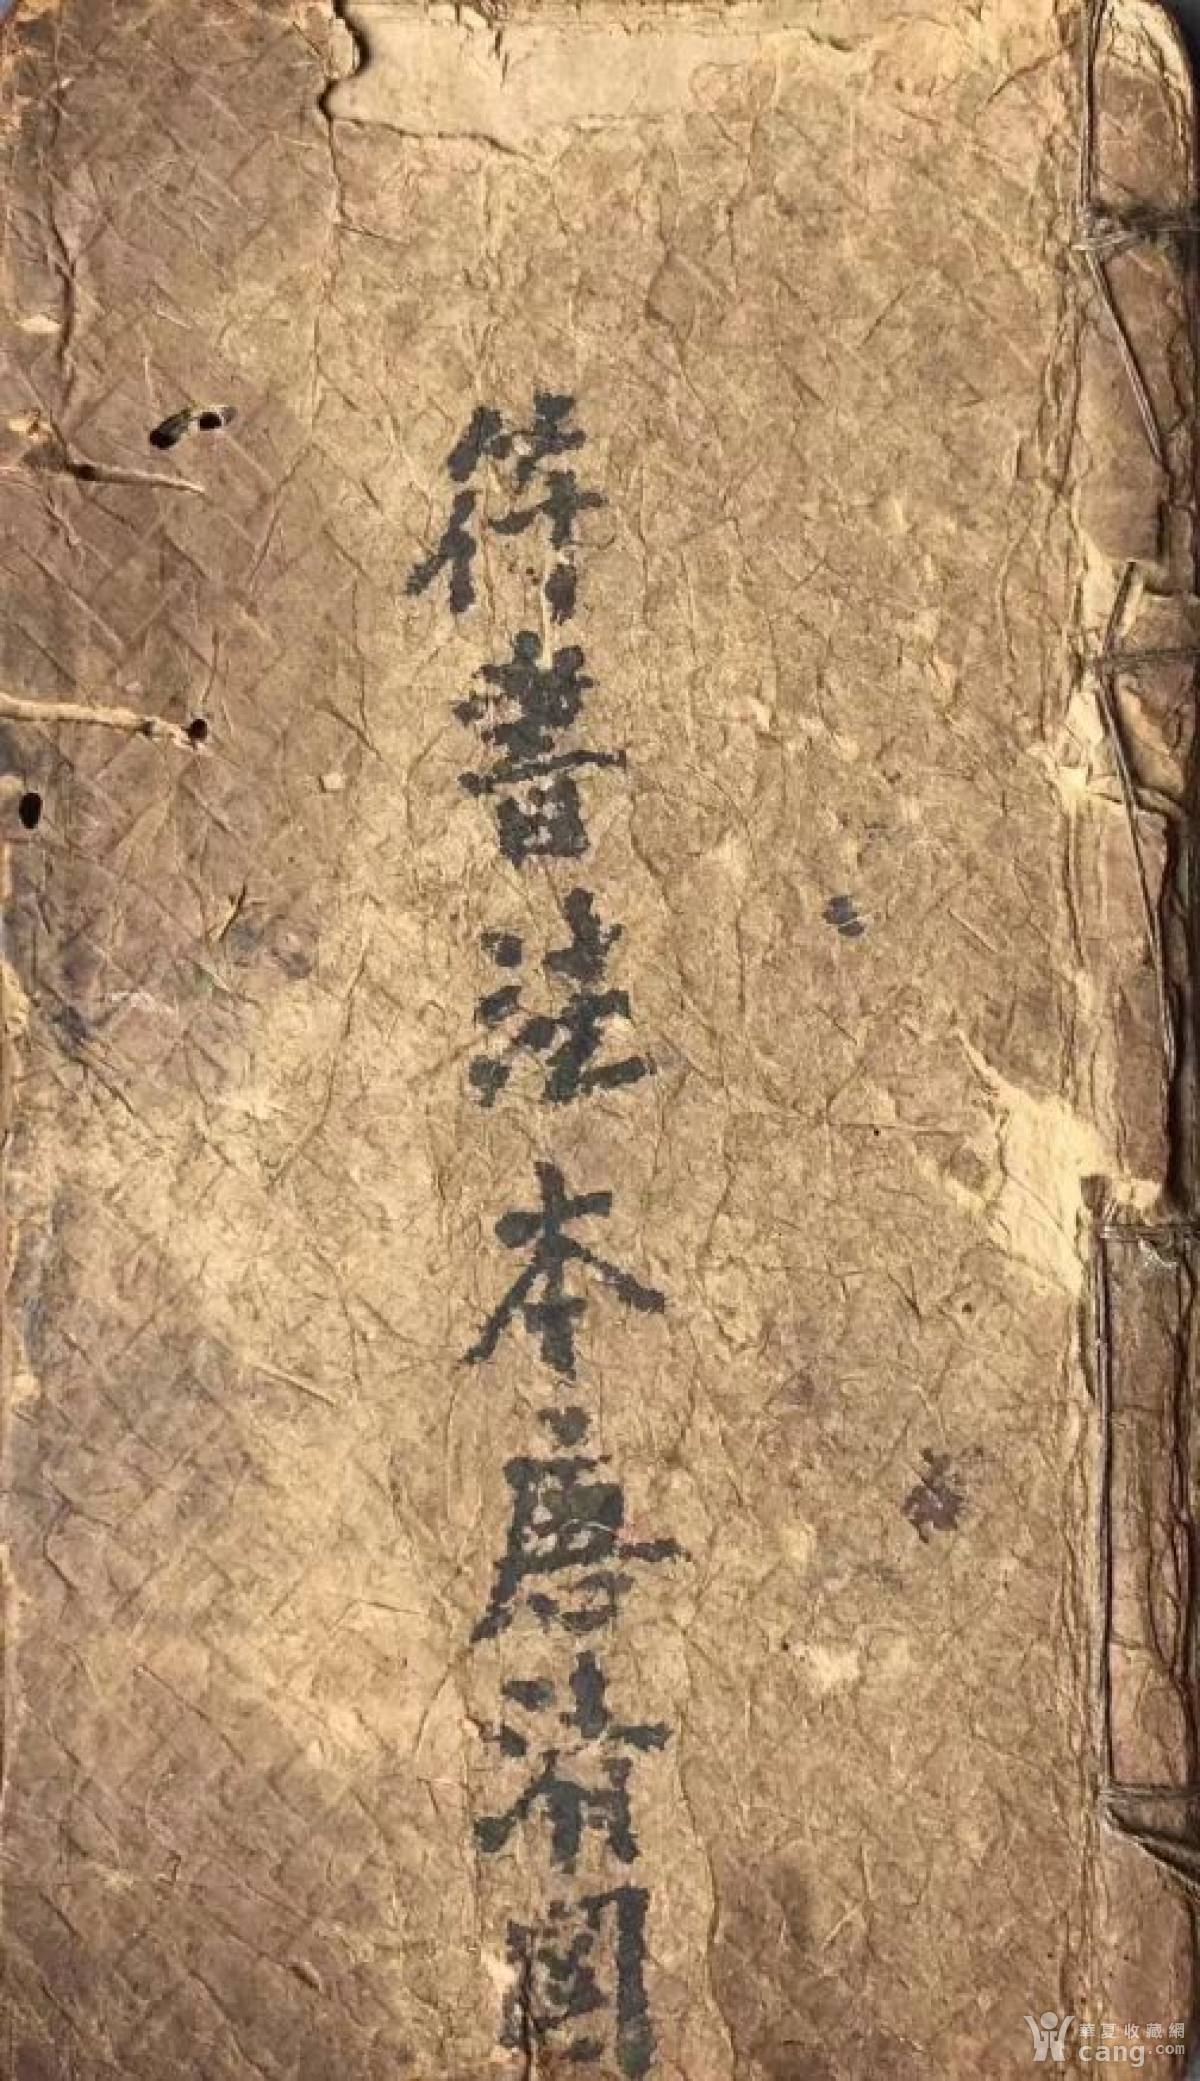 符書法本唐湘國
華夏收藏網
cang.com